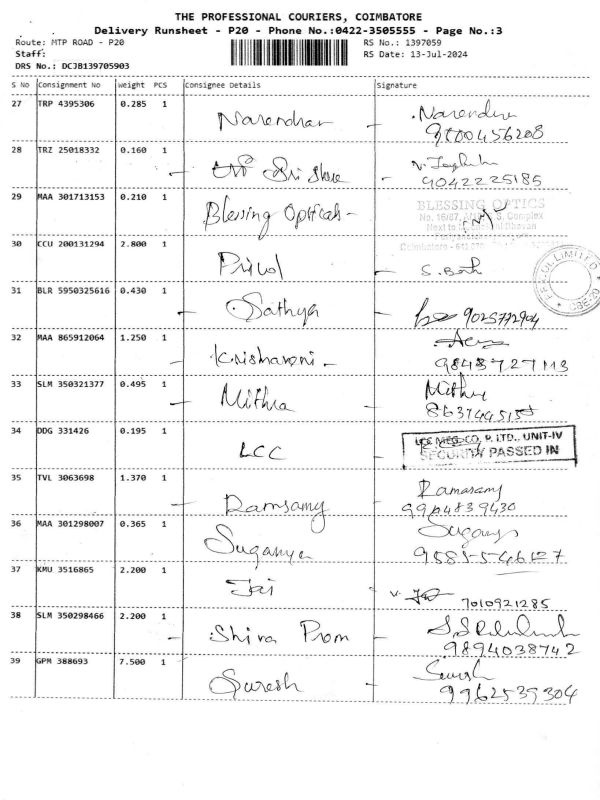 THE PROFESSIONAL COURIERS, COIMBATORE
Delivery Runsheet - P20 - Phone No.:0422-3505555 - Page No.:3
Route: MTP ROAD - P20
RS No.: 1397059
Staff:
RS Date: 13-Jul-2024
DRS No.: DCJB139705903
S No Consignment No Weight PCS Consignee Details Signature
27 TRP 4395306 0.285 1 Narendran Narendra
28 TRZ 25018332 0.160 1 Sri
9042225185
29 MAA 301713153 0.210 1 Blessing Opticals -
BLESSING OPTICS
Complex
Next to
Coimbatore
30 CCU 200131294 2.800 1 Pricol S.
LIMITED
31 BLR 5950325616 0.430 1 Sathya 9025772904
32 MAA 865912064 1.250 1 Krishaveni -
33 SLM 350321377 0.495 1 Mithra
34 DDG 331426 0.195 1 LCC
P. LTD., UNIT-IV
SECURITY PASSED IN
35 TVL 3063698 1.370 1 Ramsamy Ramasamy
36 MAA 301298007 0.365 1 Suganya
37 KMU 3516865 2.200 1 Jai
7010921285
38 SLM 350298466 2.200 1 Shiva Prom
9894038742
39 GPM 388693 7.500 1 Suresh Suresh
9962539304